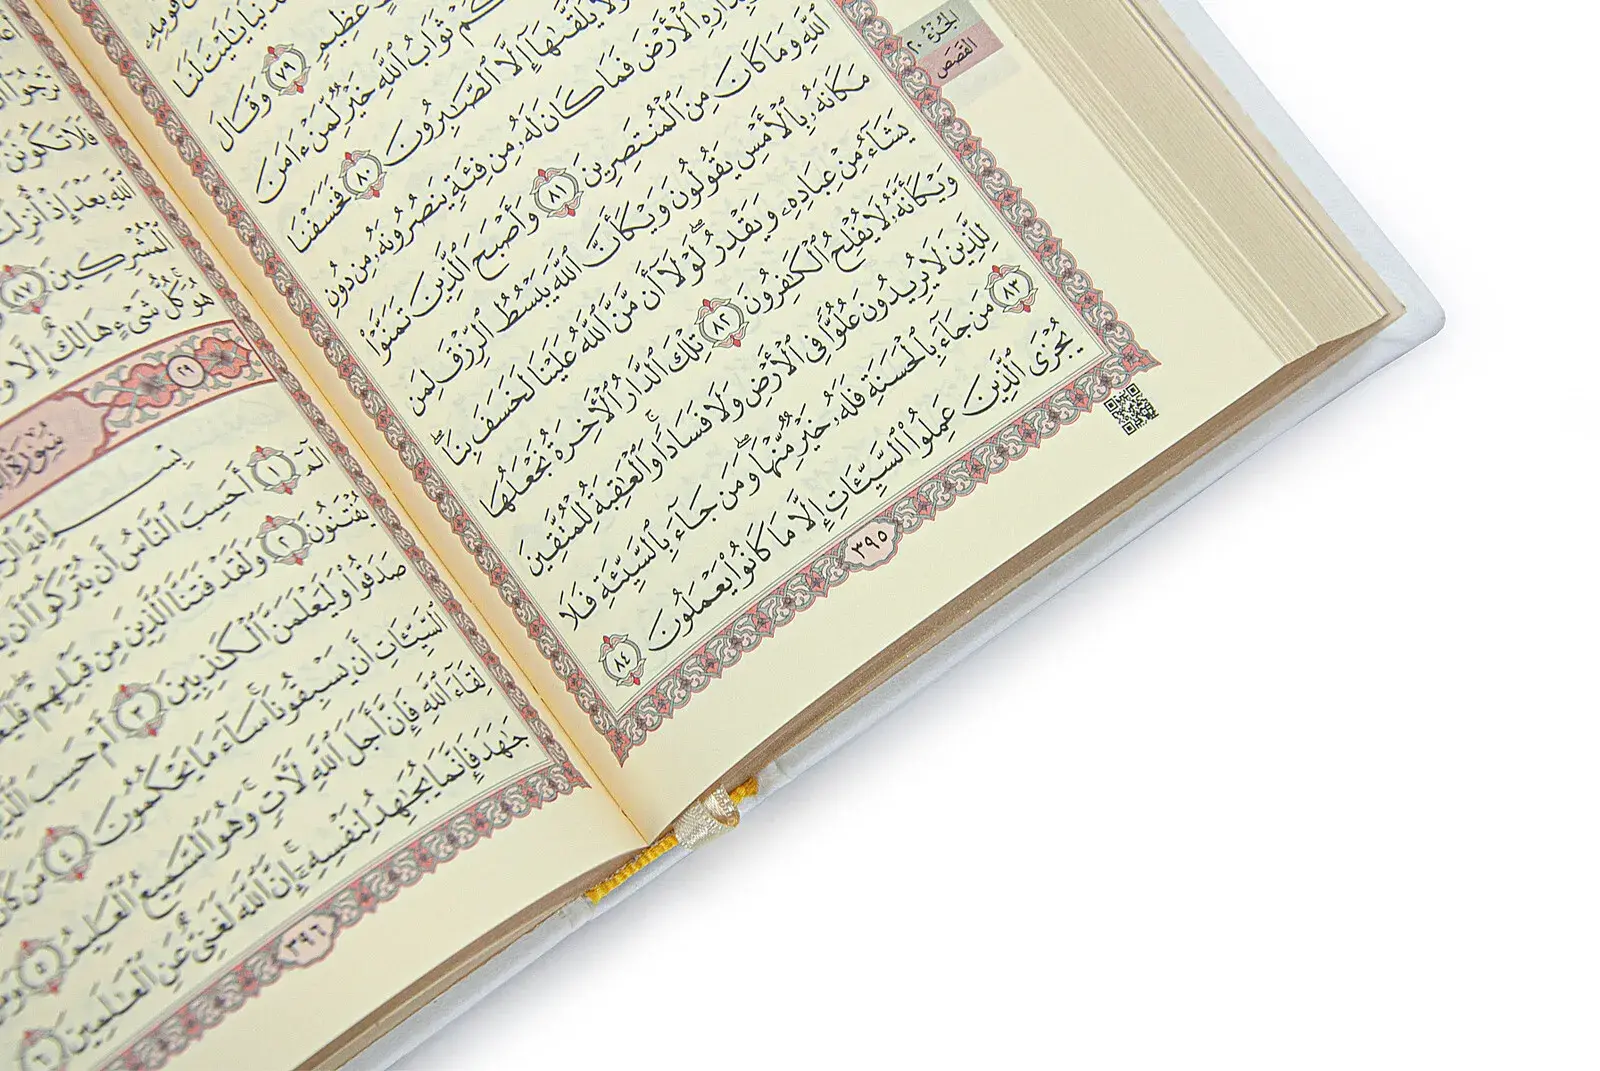 الجُزْءُ ٢٠
القَصَص
قَوْمِهِۦ
يَٰلَيْتَ لَنَا
عَظِيمٍ ٧٩ وَقَالَ
ثَوَابُ ٱللَّهِ خَيْرٌ لِّمَنْ ءَامَنَ
وَلَا يُلَقَّىٰهَآ إِلَّا ٱلصَّٰبِرُونَ ٨٠ فَخَسَفْنَا
وَبِدَارِهِ ٱلْأَرْضَ فَمَا كَانَ لَهُۥ مِن فِئَةٍ يَنصُرُونَهُۥ مِن دُونِ
ٱللَّهِ وَمَا كَانَ مِنَ ٱلْمُنتَصِرِينَ ٨١ وَأَصْبَحَ ٱلَّذِينَ تَمَنَّوْا۟
مَكَانَهُۥ بِٱلْأَمْسِ يَقُولُونَ وَيْكَأَنَّ ٱللَّهَ يَبْسُطُ ٱلرِّزْقَ لِمَن
يَشَآءُ مِنْ عِبَادِهِۦ وَيَقْدِرُ ۖ لَوْلَآ أَن مَّنَّ ٱللَّهُ عَلَيْنَا لَخَسَفَ بِنَا ۖ
وَيْكَأَنَّهُۥ لَا يُفْلِحُ ٱلْكَٰفِرُونَ ٨٢ تِلْكَ ٱلدَّارُ ٱلْءَاخِرَةُ نَجْعَلُهَا
لِلَّذِينَ لَا يُرِيدُونَ عُلُوًّا فِى ٱلْأَرْضِ وَلَا فَسَادًا ۚ وَٱلْعَٰقِبَةُ لِلْمُتَّقِينَ
٨٣ مَن جَآءَ بِٱلْحَسَنَةِ فَلَهُۥ خَيْرٌ مِّنْهَا ۖ وَمَن جَآءَ بِٱلسَّيِّئَةِ فَلَا
يُجْزَى ٱلَّذِينَ عَمِلُوا۟ ٱلسَّيِّـَٔاتِ إِلَّا مَا كَانُوا۟ يَعْمَلُونَ ٨٤
٣٩٥
تَرْجُوٓا۟ أَن
فَلَا تَكُونَنَّ
ٱللَّهِ بَعْدَ إِذْ أُنزِلَتْ
ٱلْمُشْرِكِينَ ٨٧
هُوَ ۚ كُلُّ شَىْءٍ هَالِكٌ إِلَّا
٢٩
سُورَةُ
بِسْمِ ٱللَّهِ
الٓمٓ ١ أَحَسِبَ ٱلنَّاسُ أَن يُتْرَكُوٓا۟ أَن
يُفْتَنُونَ ٢ وَلَقَدْ فَتَنَّا ٱلَّذِينَ مِن قَبْلِهِمْ ۖ
صَدَقُوا۟ وَلَيَعْلَمَنَّ ٱلْكَٰذِبِينَ ٣ أَمْ حَسِبَ
ٱلسَّيِّـَٔاتِ أَن يَسْبِقُونَا ۚ سَآءَ مَا يَحْكُمُونَ ٤ مَن كَانَ
لِقَآءَ ٱللَّهِ فَإِنَّ أَجَلَ ٱللَّهِ لَءَاتٍ ۚ وَهُوَ ٱلسَّمِيعُ ٱلْعَلِيمُ ٥
جَٰهَدَ فَإِنَّمَا يُجَٰهِدُ لِنَفْسِهِۦٓ ۚ إِنَّ ٱللَّهَ لَغَنِىٌّ عَنِ ٱلْعَٰلَمِينَ ٦
٣٩٦